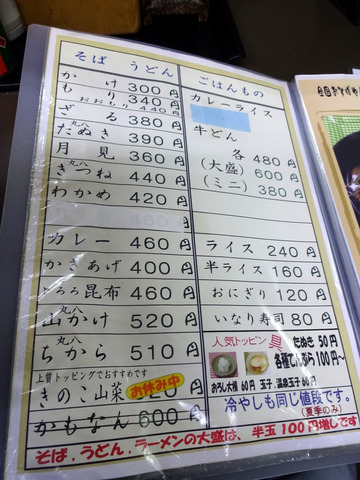 そば うどん
かけ 300円
もり 340円
おおもり 440
ざる 380円
丸八
たぬき 390円
月見 360円
丸八
きつね 440円
わかめ 420円
カレー 460円
かきあげ 400円
とろろ昆布 460円
丸八
山かけ 520円
丸八
ちから 510円
上質トッピングでおすすめです
きのこ山菜 20円
お休み中
かもなん 600円
ごはんもの
カレーライス
牛どん
各 480円
(大盛) 600円
(ミニ) 380円
ライス 240円
半ライス 160円
おにぎり 120円
いなり寿司 80円
人気トッピン具
たぬき 50円
各種てんぷら 100円〜
おろし大根 60円 玉子、温泉玉子 60円
冷やしも同じ値段です。
(夏季のみ)
そば、うどん、ラーメンの大盛は、半玉100円増しです